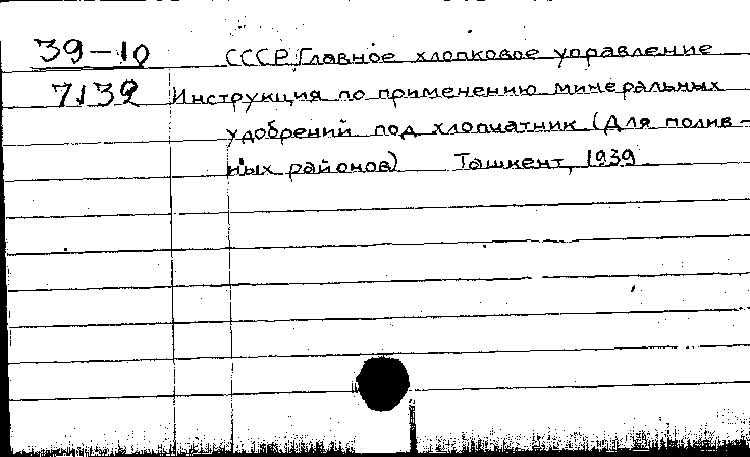 39-10 СССР. Главное хлопковое управление
7139 Инструкция по применению минеральных
удобрений под хлопчатник (Для полив-
ных районов) Ташкент, 1939